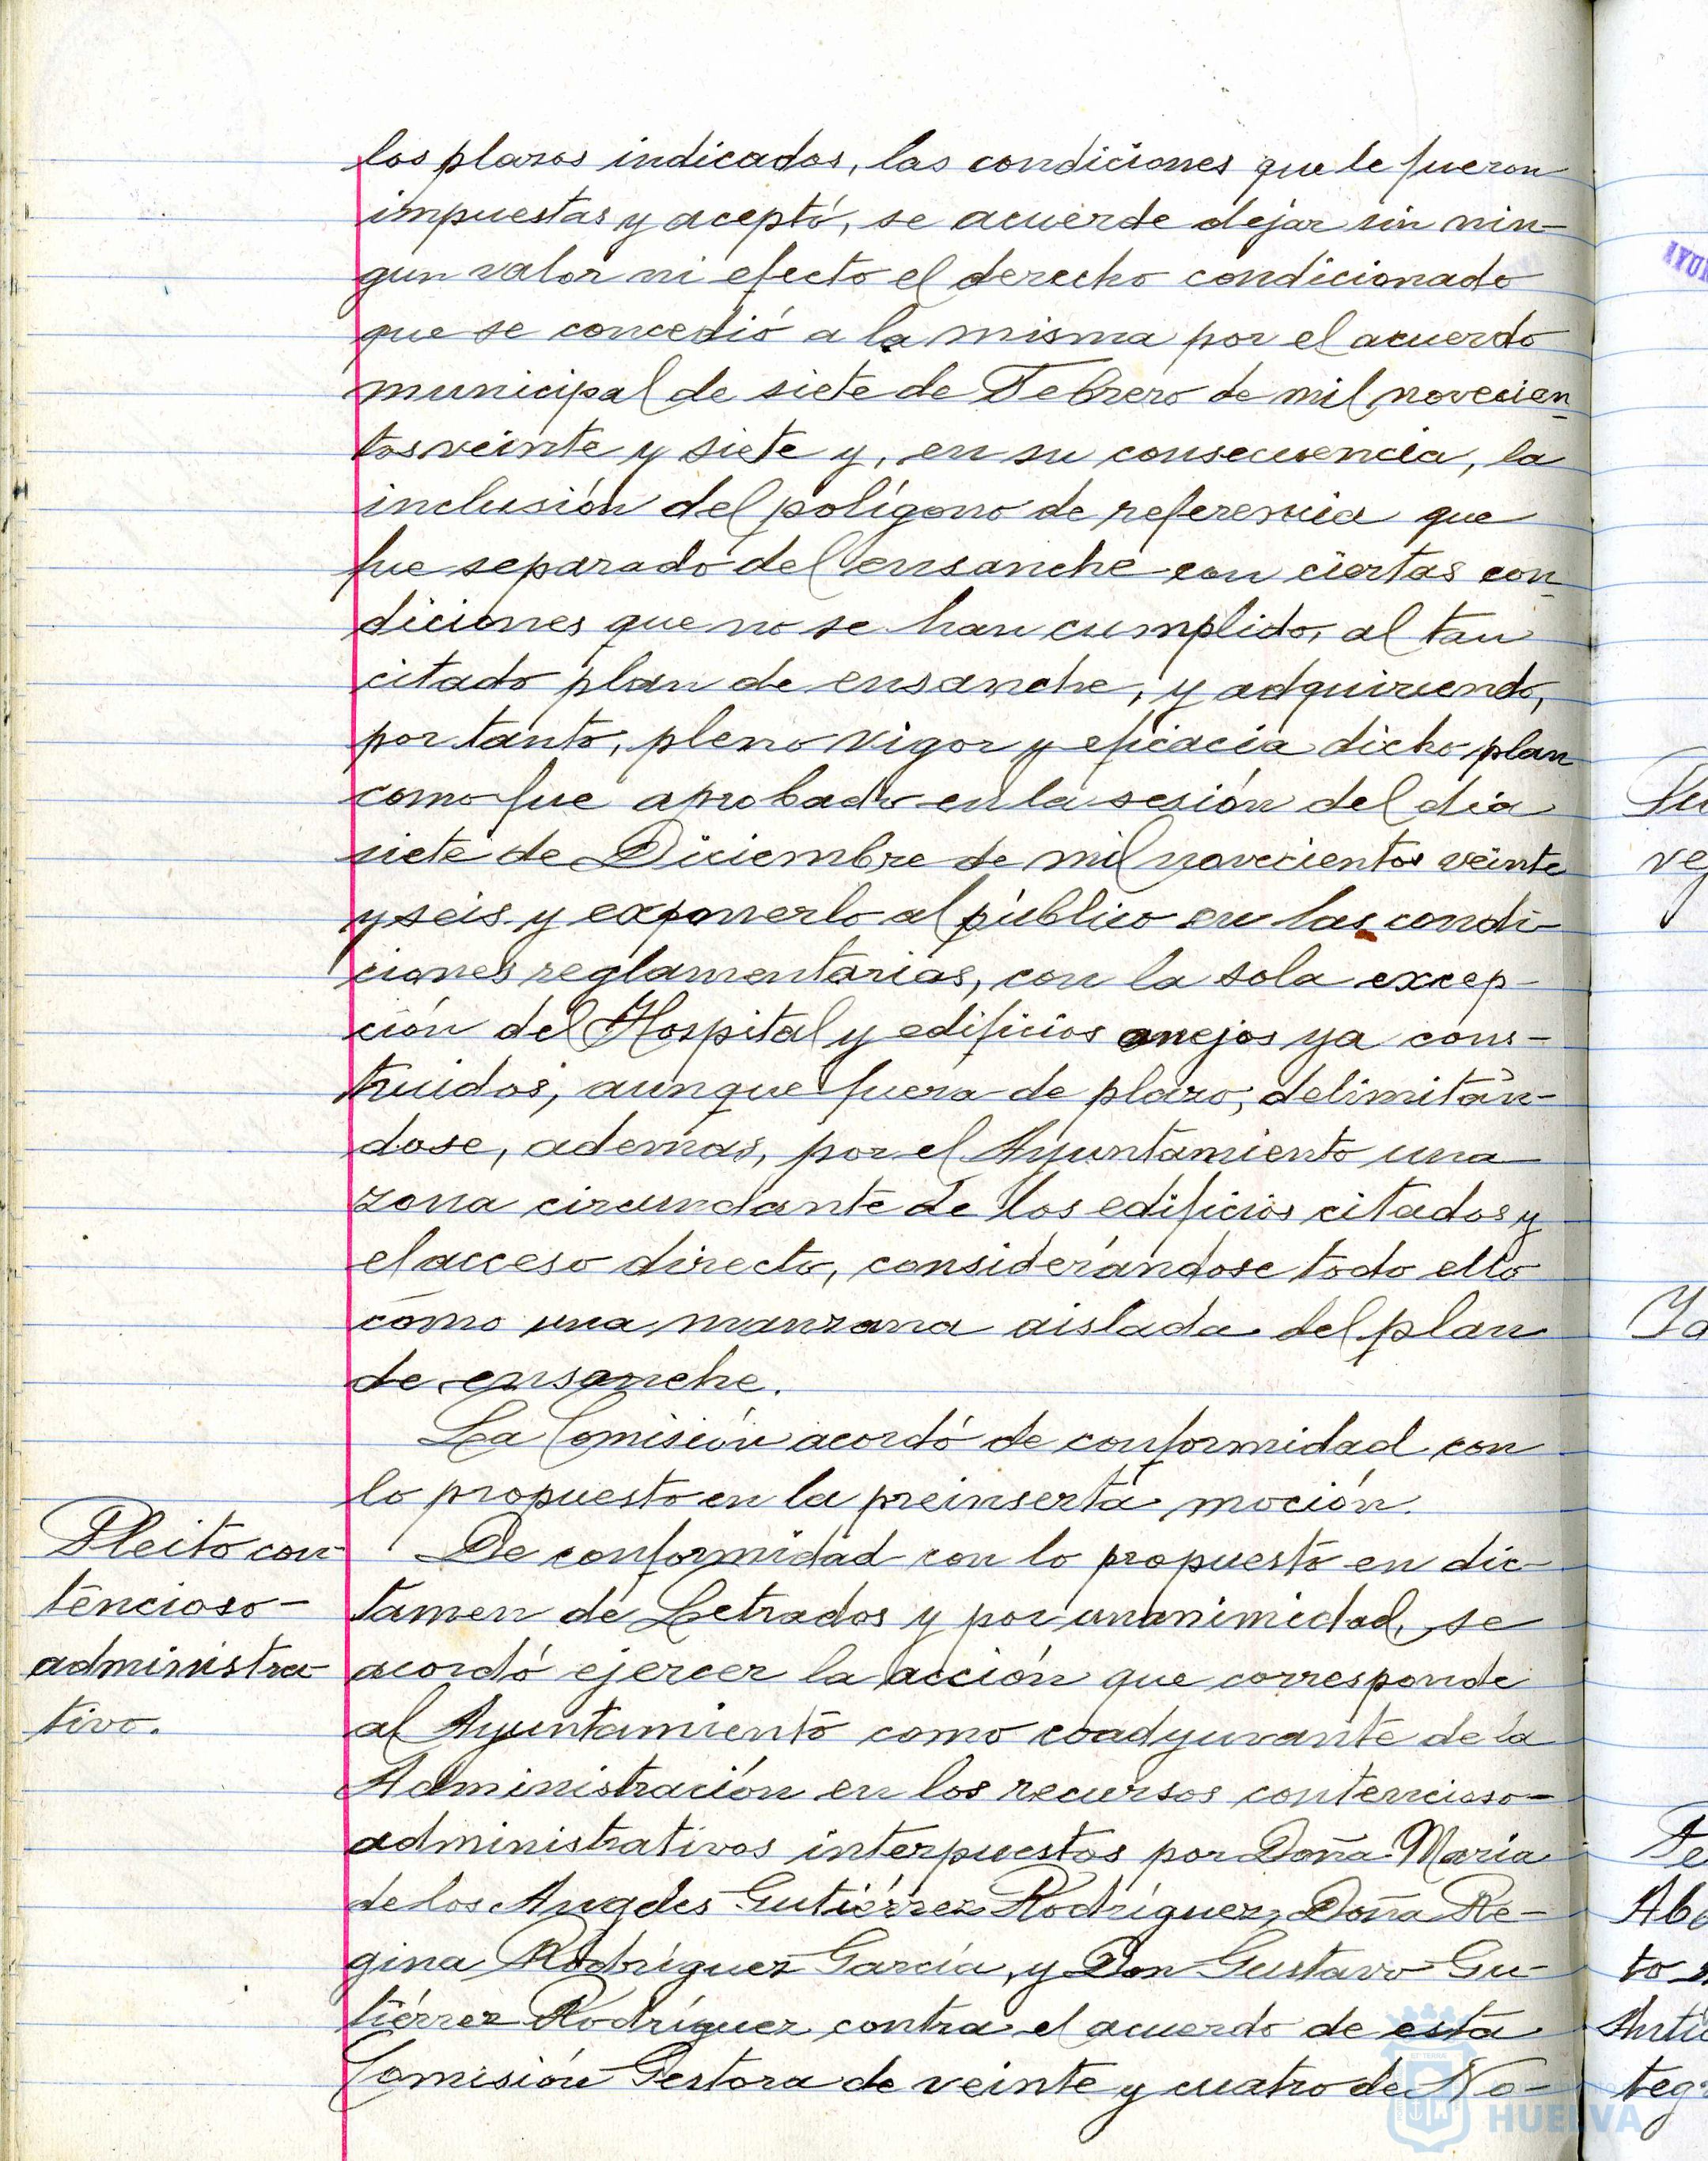 los plazos indicados, las condiciones que le fueron
impuestas y aceptó, se acuerde dejar sin nin-
gun valor ni efecto el derecho condicionado
que se concedió a la misma por el acuerdo
municipal de siete de Febrero de mil novecien-
tos veinte y siete y, en su consecuencia, la
inclusión del polígono de referencia que
fue separado del ensanche con ciertas con-
diciones que no se han cumplido, al tan
citado plan de ensanche, y adquiriendo,
por tanto, pleno vigor y eficacia dicho plan
como fue aprobado en la sesión del día
siete de Diciembre de mil novecientos veinte
y seis y exponerlo al público en las condi-
ciones reglamentarias, con la sola excep-
ción del Hospital y edificios anejos ya cons-
truidos, aunque fuera de plazo, delimitán-
dose, ademas, por el Ayuntamiento una
zona circundante de los edificios citados y
el acceso directo, considerándose todo ello
como una manzana aislada del plan
de ensanche.
La Comisión acordó de conformidad con
lo propuesto en la preinserta moción.
Pleito con-
tencioso-
administra-
tivo.
De conformidad con lo propuesto en dic-
tamen de Letrados y por unanimidad, se
acordó ejercer la acción que corresponde
al Ayuntamiento como coadyuvante de la
Administración en los recursos contencioso-
administrativos interpuestos por Doña Maria
de los Angeles Gutiérrez Rodríguez, Doña Re-
gina Rodríguez García, y Don Gustavo Gu-
tiérrez Rodríguez contra el acuerdo de esta
Comisión Gestora de veinte y cuatro de No-
HUELVA